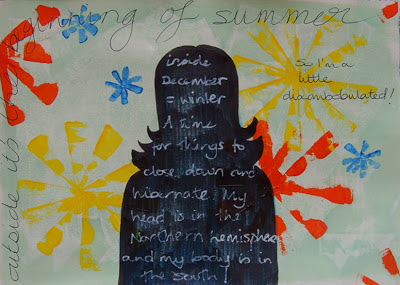 outside it's the beginning of summer
inside
December
= winter
A time
for things to
close down and
hibernate. My
head is in the
Northern hemisphere
and my body is in
the south!
So I'm a
little
discombobulated!